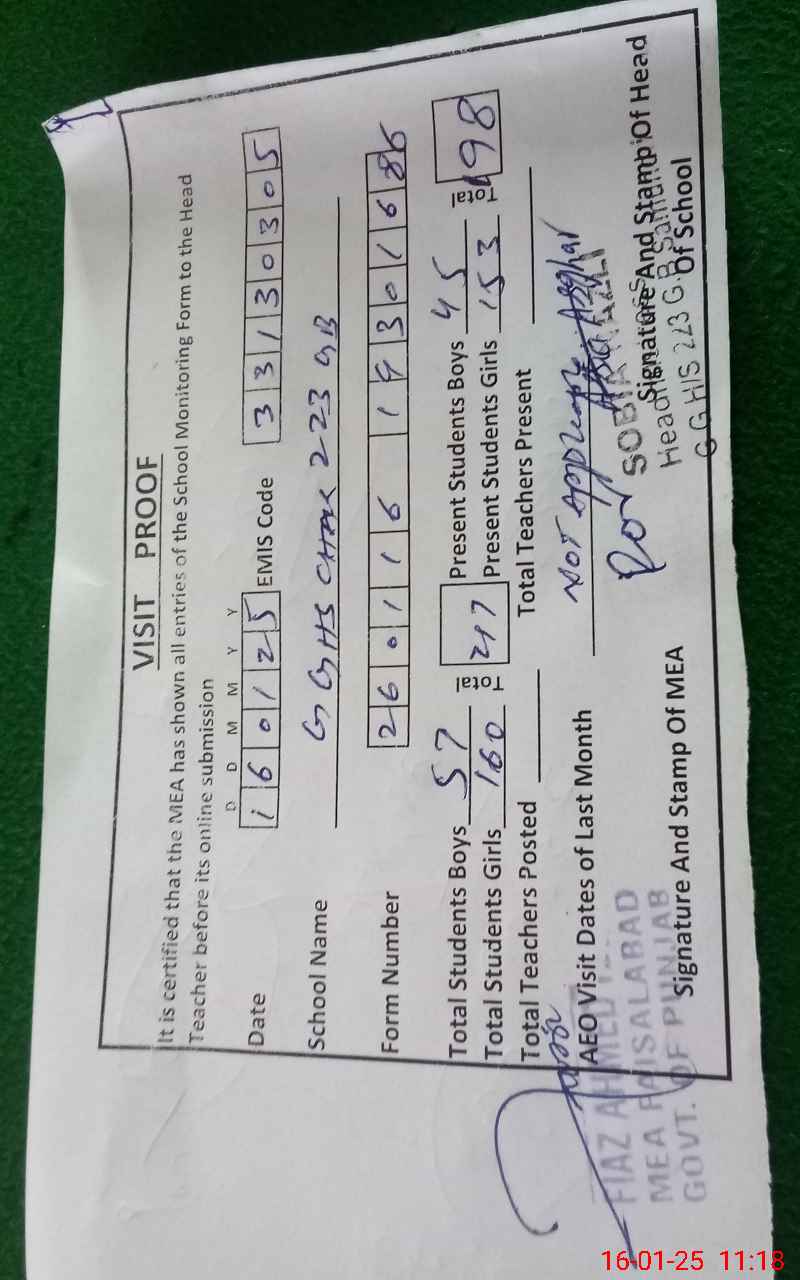 VISIT PROOF
It is certified that the MEA has shown all entries of the School Monitoring Form to the Head
Teacher before its online submission
D D M M Y Y
Date 160125 EMIS Code 33130305
School Name GGHS CHAK 223 GB
Form Number 260116 14301686
Total Students Boys 57 Total 217 Present Students Boys 45 Total 198
Total Students Girls 160 Present Students Girls 153
Total Teachers Posted Total Teachers Present
AEO Visit Dates of Last Month NOT
Signature And Stamp Of MEA
Signature And Stamp Of Head
Of School
FIAZ AHMED
MEA FAISALABAD
GOVT. OF PUNJAB
SOBIA
G.G.H/S 223 G.B
16-01-25 11:18